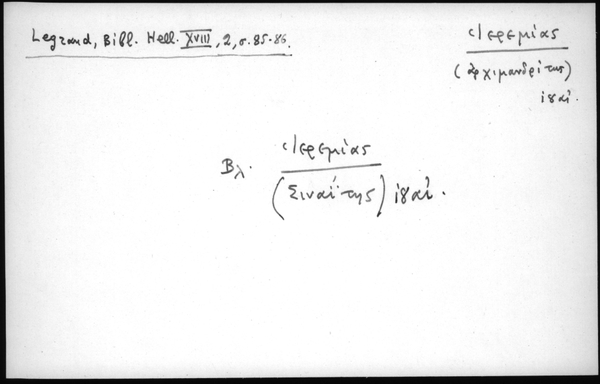 Legrand, Bibl. Hell. XVIII, 2, σ. 85-86.
Ἱερεμίας
(ἀρχιμανδρίτης)
ιηαἰ.
Βλ. Ἱερεμίας
(Σιναΐτης) ιηαἰ.